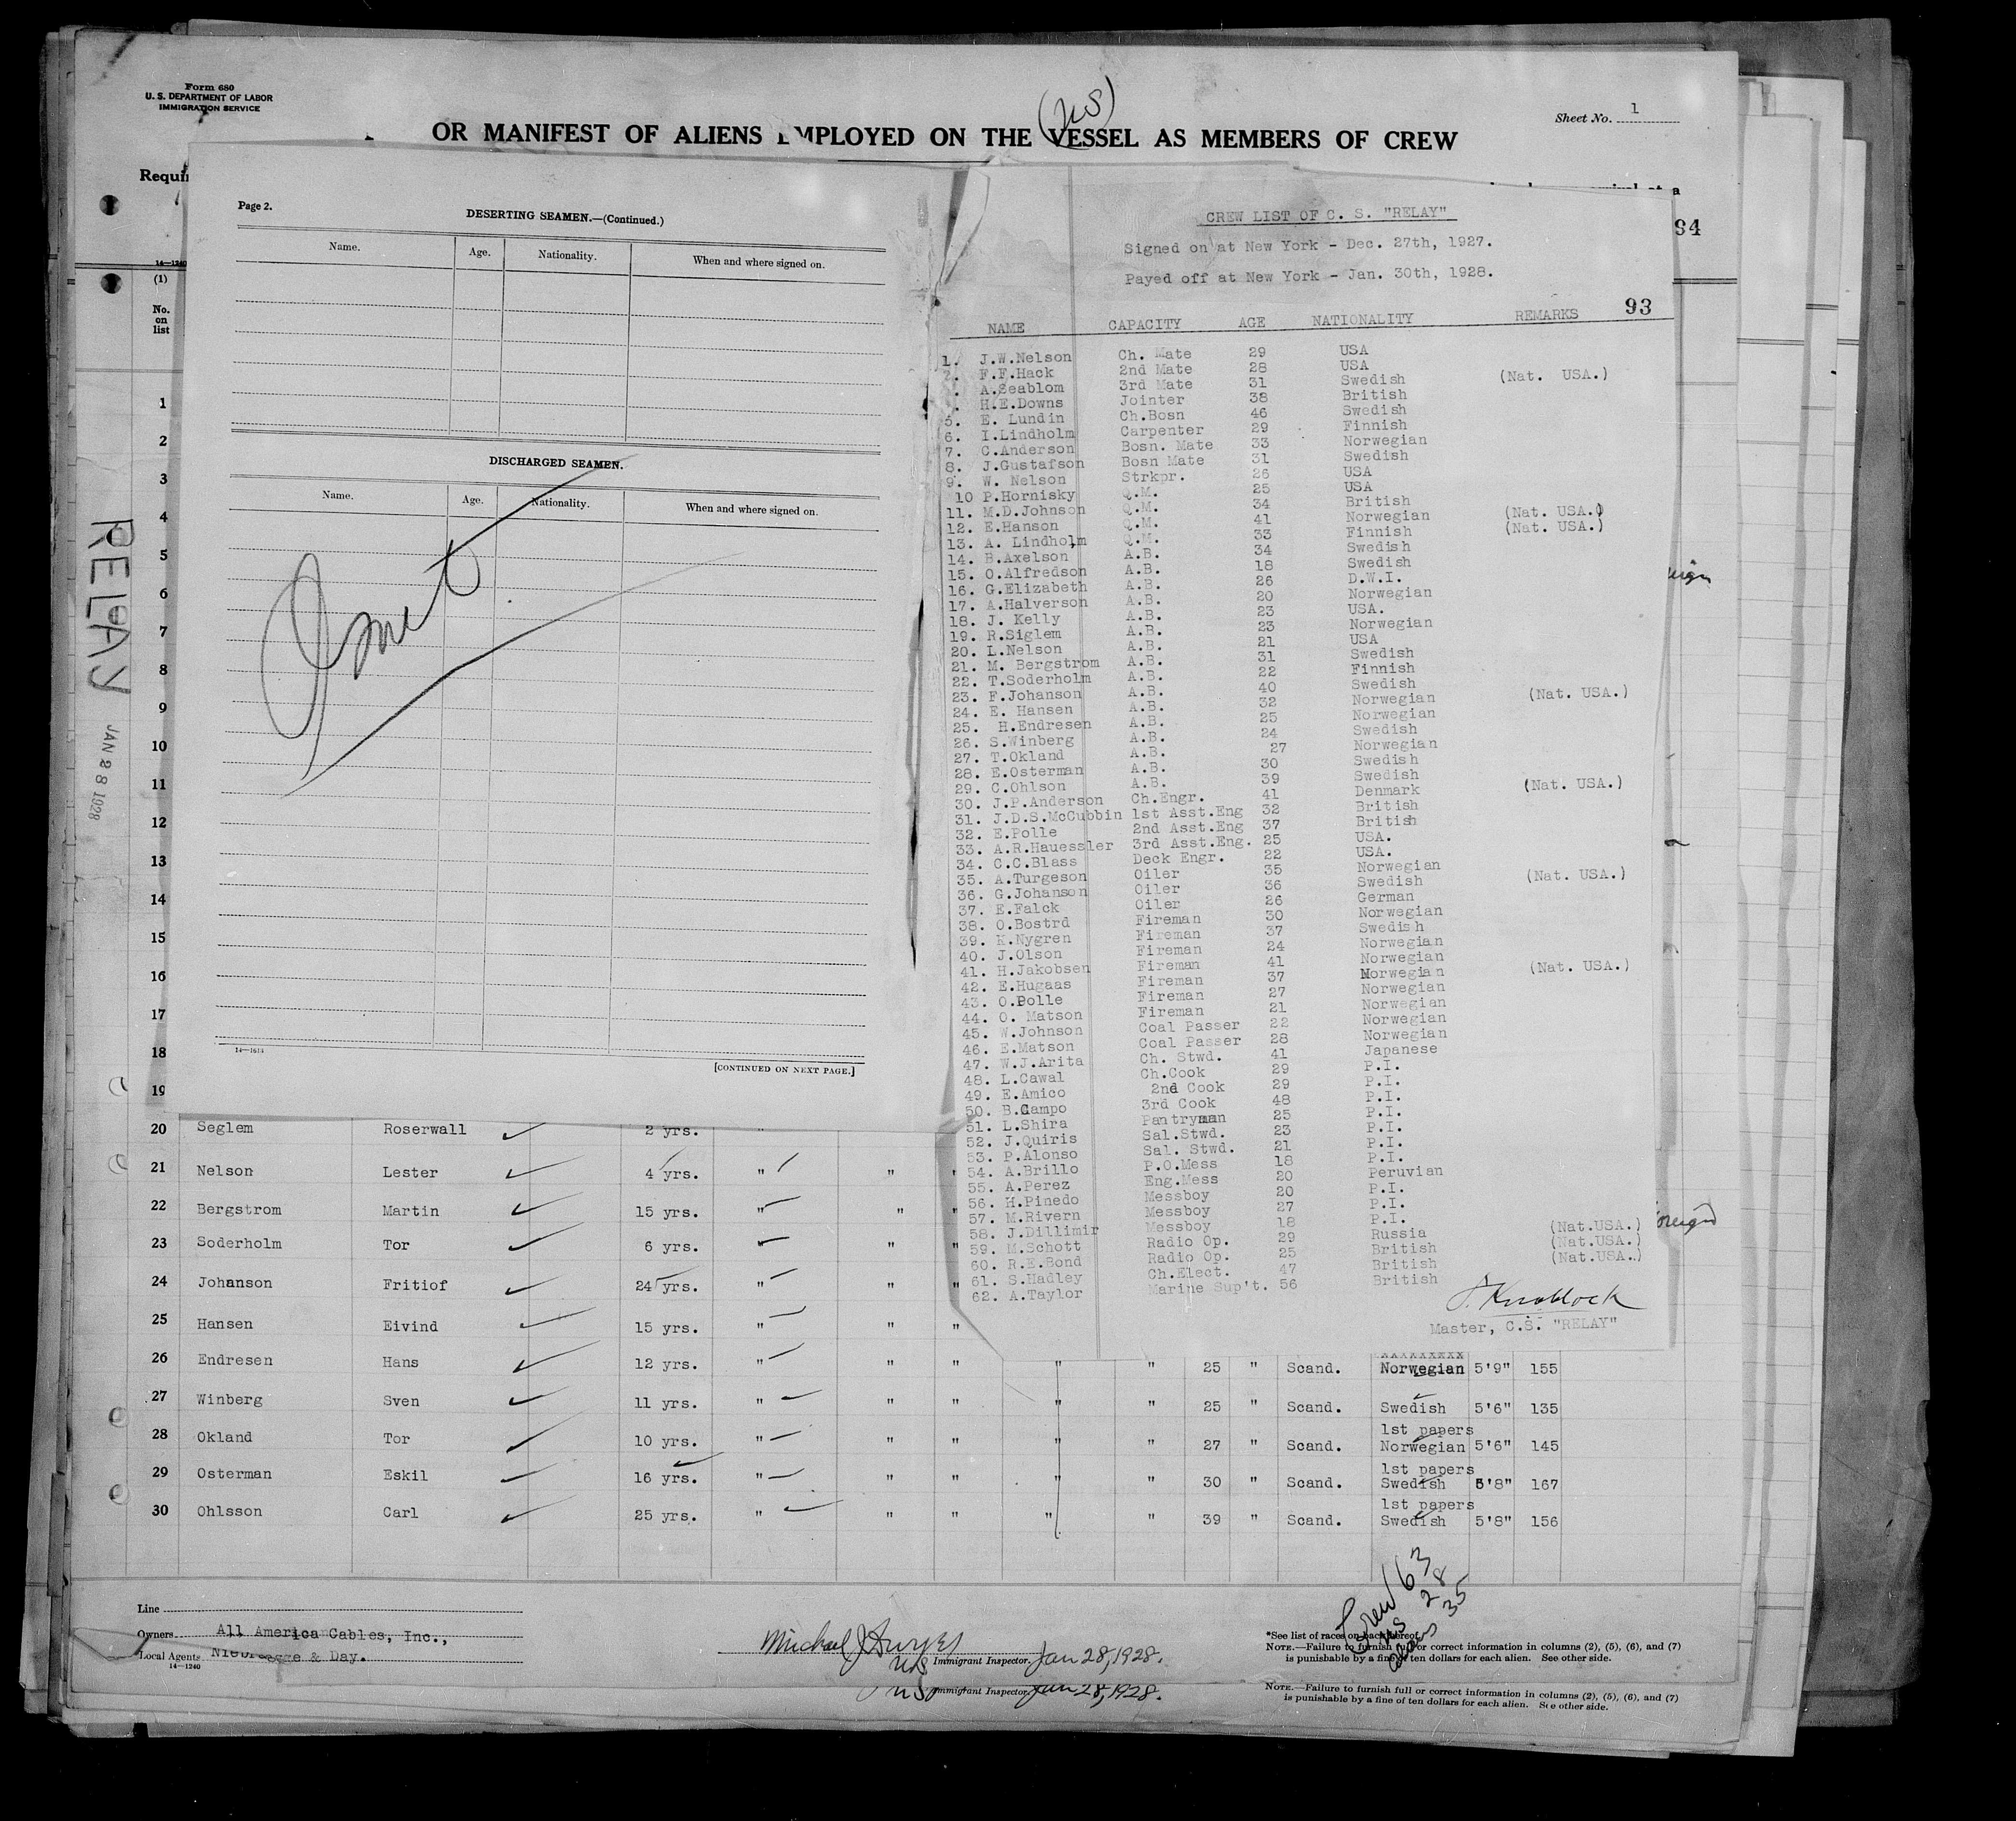 Form 680
U. S. DEPARTMENT OF LABOR
IMMIGRATION SERVICE
Sheet No. 1
OR MANIFEST OF ALIENS EMPLOYED ON THE VESSEL AS MEMBERS OF CREW
94
Page 2.
DESERTING SEAMEN.—(Continued.)
Name. Age. Nationality. When and where signed on.
DISCHARGED SEAMEN.
Name. Age. Nationality. When and where signed on.
14—1614
[CONTINUED ON NEXT PAGE.]
CREW LIST OF C. S. "RELAY"
Signed on at New York - Dec. 27th, 1927.
Payed off at New York - Jan. 30th, 1928.
93
NAME CAPACITY AGE NATIONALITY REMARKS
1. J.W.Nelson Ch. Mate 29 USA
2. F.F.Hack 2nd Mate 28 USA
. A.Seablom 3rd Mate 31 Swedish (Nat. USA.)
. H.E.Downs Jointer 38 British
5. E. Lundin Ch.Bosn 46 Swedish
6. I.Lindholm Carpenter 29 Finnish
7. C.Anderson Bosn. Mate 33 Norwegian
8. J.Gustafson Bosn Mate 31 Swedish
9. W. Nelson Strkpr. 26 USA
10 P.Hornisky Q.M. 25 USA
11. M.D.Johnson Q.M. 34 British
12. E.Hanson Q.M. 41 Norwegian (Nat. USA.)
13. A. Lindholm Q.M. 33 Finnish (Nat. USA.)
14. B.Axelson A.B. 34 Swedish
15. O.Alfredson A.B. 18 Swedish
16. G.Elizabeth A.B. 26 D.W.I.
17. A.Halverson A.B. 20 Norwegian
18. J. Kelly A.B. 23 USA.
19. R.Siglem A.B. 23 Norwegian
20. L.Nelson A.B. 21 USA
21. M. Bergstrom A.B. 31 Swedish
22. T.Soderholm A.B. 22 Finnish
23. F.Johanson A.B. 40 Swedish
24. E. Hansen A.B. 32 Norwegian (Nat. USA.)
25. H.Endresen A.B. 25 Norwegian
26. S.Winberg A.B. 24 Swedish
27. T.Okland A.B. 27 Norwegian
28. E.Osterman A.B. 30 Swedish
29. C.Ohlson A.B. 39 Swedish
30. J.P.Anderson Ch.Engr. 41 Denmark (Nat. USA.)
31. J.D.S.McCubbin 1st Asst.Eng 32 British
32. E.Polle 2nd Asst.Eng 37 British
33. A.R.Hauessler 3rd Asst.Eng. 25 USA.
34. C.C.Blass Deck Engr. 22 USA.
35. A.Turgeson Oiler 35 Norwegian
36. G.Johanson Oiler 36 Swedish (Nat. USA.)
37. E.Falck Oiler 26 German
38. O.Bostrd Fireman 30 Norwegian
39. K.Nygren Fireman 37 Swedish
40. J.Olson Fireman 24 Norwegian
41. H.Jakobsen Fireman 41 Norwegian
42. E.Hugaas Fireman 37 Norwegian (Nat. USA.)
43. O.Polle Fireman 27 Norwegian
44. O. Matson Fireman 21 Norwegian
45. W.Johnson Coal Passer 22 Norwegian
46. E.Matson Coal Passer 28 Norwegian
47. W.J.Arita Ch. Stwd. 41 Japanese
48. L.Cawal Ch.Cook 29 P.I.
49. E.Amico 2nd Cook 29 P.I.
50. B.Campo 3rd Cook 48 P.I.
51. L.Shira Pantryman 25 P.I.
52. J.Quiris Sal.Stwd. 23 P.I.
53. P.Alonso Sal. Stwd. 21 P.I.
54. A.Brillo P.O.Mess 18 P.I.
55. A.Perez Eng.Mess 20 Peruvian
56. H.Pinedo Messboy 20 P.I.
57. M.Rivern Messboy 27 P.I.
58. J.Dillimir Messboy 18 P.I.
59. M.Schott Radio Op. 29 Russia (Nat.USA.)
60. R.E.Bond Radio Op. 25 British (Nat.USA.)
61. S.Hadley Ch.Elect. 47 British (Nat.USA.)
62. A.Taylor Marine Sup't. 56 British
J. Knoblock
Master, C.S. "RELAY"
RELAY
JAN 28 1928
14—1240
(1)
No. on list
1
2
3
4
5
6
7
8
9
10
11
12
13
14
15
16
17
18
19
20 Seglem Roserwall 2 yrs. "
21 Nelson Lester 4 yrs. " " "
22 Bergstrom Martin 15 yrs. " " "
23 Soderholm Tor 6 yrs. " " "
24 Johanson Fritiof 24 yrs. " " "
25 Hansen Eivind 15 yrs. " " "
26 Endresen Hans 12 yrs. " " " " " 25 " Scand. Norwegian 5'9" 155
27 Winberg Sven 11 yrs. " " " " " 25 " Scand. Swedish 5'6" 135
28 Okland Tor 10 yrs. " " " " " 27 " Scand. 1st papers Norwegian 5'6" 145
29 Osterman Eskil 16 yrs. " " " " " 30 " Scand. 1st papers Swedish 5'8" 167
30 Ohlsson Carl 25 yrs. " " " " " 39 " Scand. 1st papers Swedish 5'8" 156
Crew 63
28
35
Line
Owners All America Cables, Inc.,
Local Agents & Day.
14—1240
Michael J
Immigrant Inspector. Jan 28, 1928.
Immigrant Inspector. Jan 28, 1928.
*See list of races on back hereof.
NOTE.—Failure to furnish full or correct information in columns (2), (5), (6), and (7)
is punishable by a fine of ten dollars for each alien. See other side.
NOTE.—Failure to furnish full or correct information in columns (2), (5), (6), and (7)
is punishable by a fine of ten dollars for each alien. See other side.